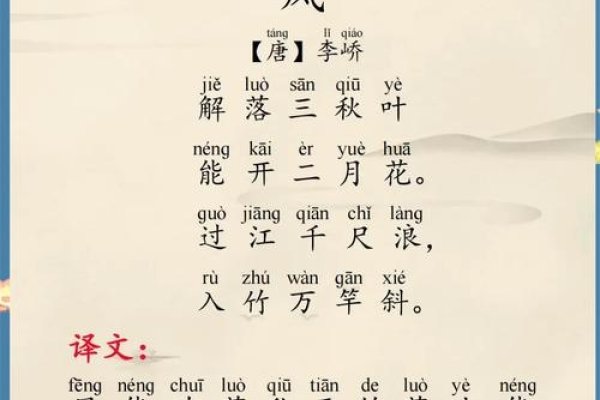 风
táng lǐ qiáo
【唐】李峤
jiě luò sān qiū yè
解落三秋叶
néng kāi èr yuè huā
能开二月花。
guò jiāng qiān chǐ làng
过江千尺浪,
rù zhú wàn gān xié
入竹万竿斜。
译文:
fēng néng chuī luò qiū tiān de luò yè néng